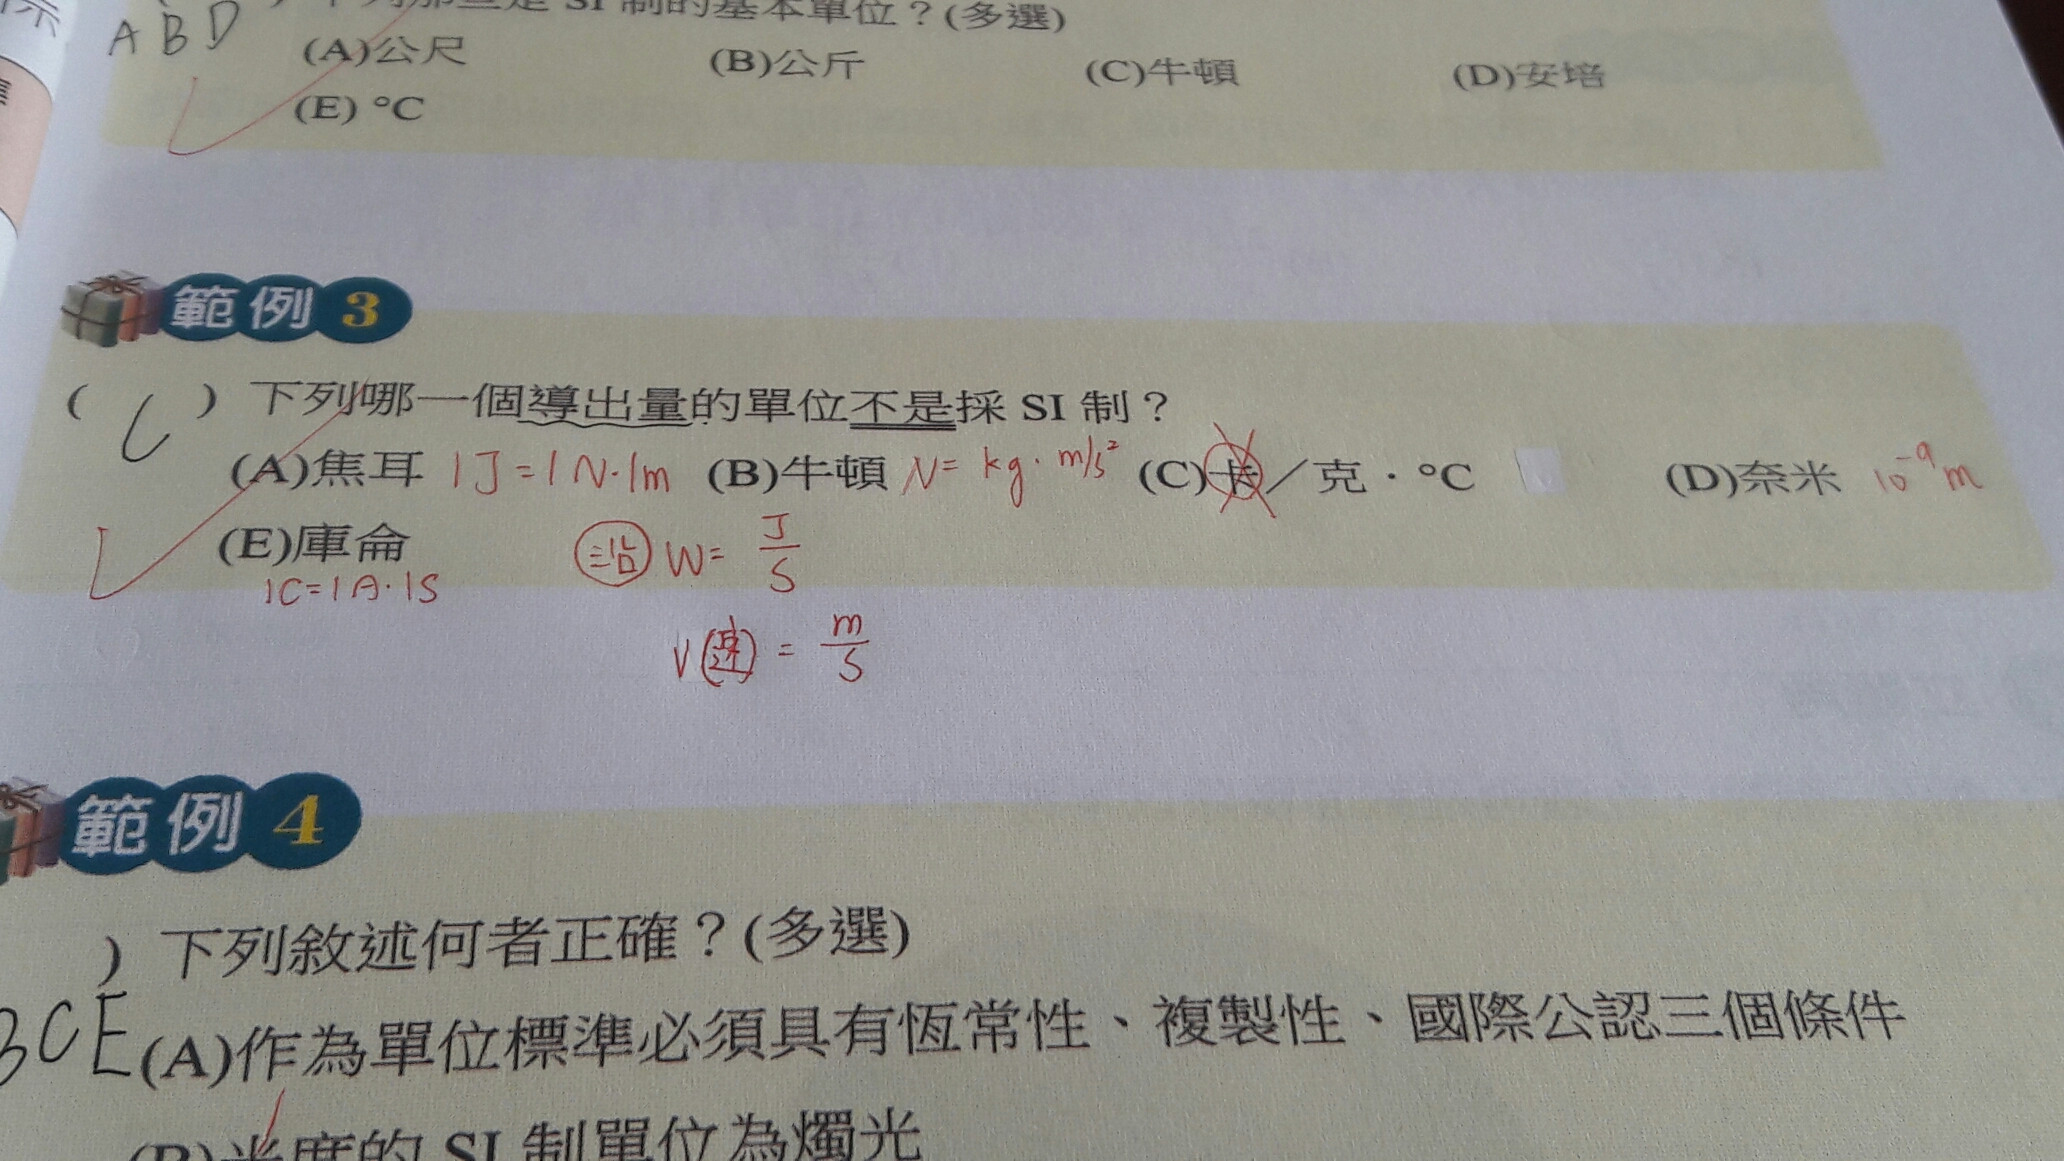 下列那些是 SI 制的基本單位？(多選)
A B D
(A)公尺 (B)公斤 (C)牛頓 (D)安培
(E) °C
範例 3
( C ) 下列哪一個導出量的單位不是採 SI 制？
(A)焦耳 1J=1N·1m (B)牛頓 N= kg·m/s² (C)卡／克·°C (D)奈米 10⁻⁹m
(E)庫侖 W= J/S
1C=1A·1S
V(速) = m/S
範例 4
) 下列敘述何者正確？(多選)
BCE (A)作為單位標準必須具有恆常性、複製性、國際公認三個條件
(B)光度的 SI 制單位為燭光